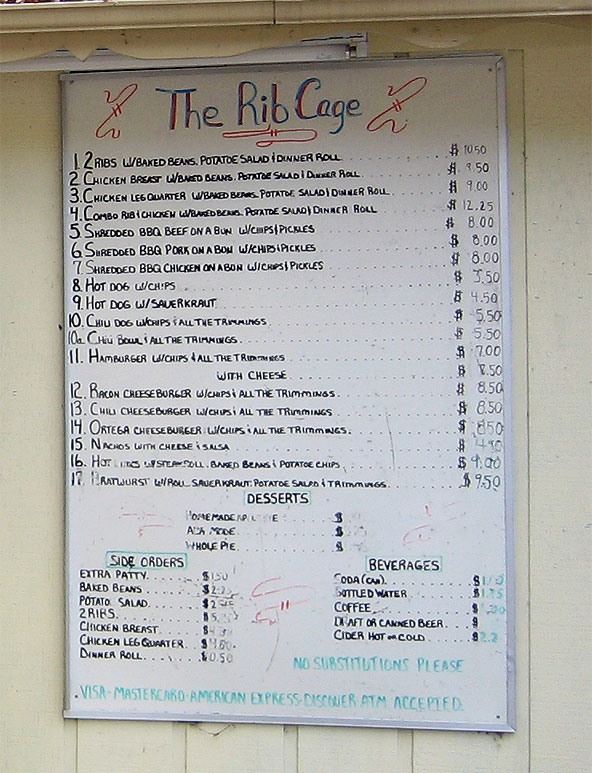 The Rib Cage
1. 2 RIBS W/BAKED BEANS, POTATOE SALAD & DINNER ROLL $ 10.50
2. CHICKEN BREAST W/BAKED BEANS, POTATOE SALAD & DINNER ROLL $ 9.50
3. CHICKEN LEG QUARTER W/BAKED BEANS, POTATOE SALAD & DINNER ROLL $ 9.00
4. COMBO RIB & CHICKEN W/BAKED BEANS, POTATOE SALAD & DINNER ROLL $ 12.25
5. SHREDDED BBQ BEEF ON A BUN W/CHIPS & PICKLES $ 8.00
6. SHREDDED BBQ PORK ON A BUN W/CHIPS & PICKLES $ 8.00
7. SHREDDED BBQ CHICKEN ON A BUN W/CHIPS & PICKLES $ 8.00
8. HOT DOG W/CHIPS $ 3.50
9. HOT DOG W/SAUERKRAUT $ 4.50
10. CHILI DOG W/CHIPS & ALL THE TRIMMINGS $ 5.50
10a. CHILI BOWL & ALL THE TRIMMINGS $ 5.50
11. HAMBURGER W/CHIPS & ALL THE TRIMMINGS $ 7.00
WITH CHEESE $ 7.50
12. BACON CHEESEBURGER W/CHIPS & ALL THE TRIMMINGS $ 8.50
13. CHILI CHEESEBURGER W/CHIPS & ALL THE TRIMMINGS $ 8.50
14. ORTEGA CHEESEBURGER W/CHIPS & ALL THE TRIMMINGS $ 8.50
15. NACHOS WITH CHEESE & SALSA $
16. HOT W/STEAK ROLL, BAKED BEANS & POTATOE CHIPS $ 9.00
17. BRATWURST W/ROLL, SAUERKRAUT, POTATOE SALAD & TRIMMINGS $ 9.50
DESSERTS
HOMEMADE APPLE PIE $
ALA MODE $
WHOLE PIE $
SIDE ORDERS
EXTRA PATTY $ 1.50
BAKED BEANS $
POTATO SALAD $
2 RIBS $
CHICKEN BREAST $
CHICKEN LEG QUARTER $ 4.00
DINNER ROLL $ 0.50
BEVERAGES
SODA (CAN) $
BOTTLED WATER $
COFFEE $
DRAFT OR CANNED BEER $
CIDER HOT OR COLD $
NO SUBSTITUTIONS PLEASE
VISA - MASTERCARD - AMERICAN EXPRESS - DISCOVER - ATM ACCEPTED.